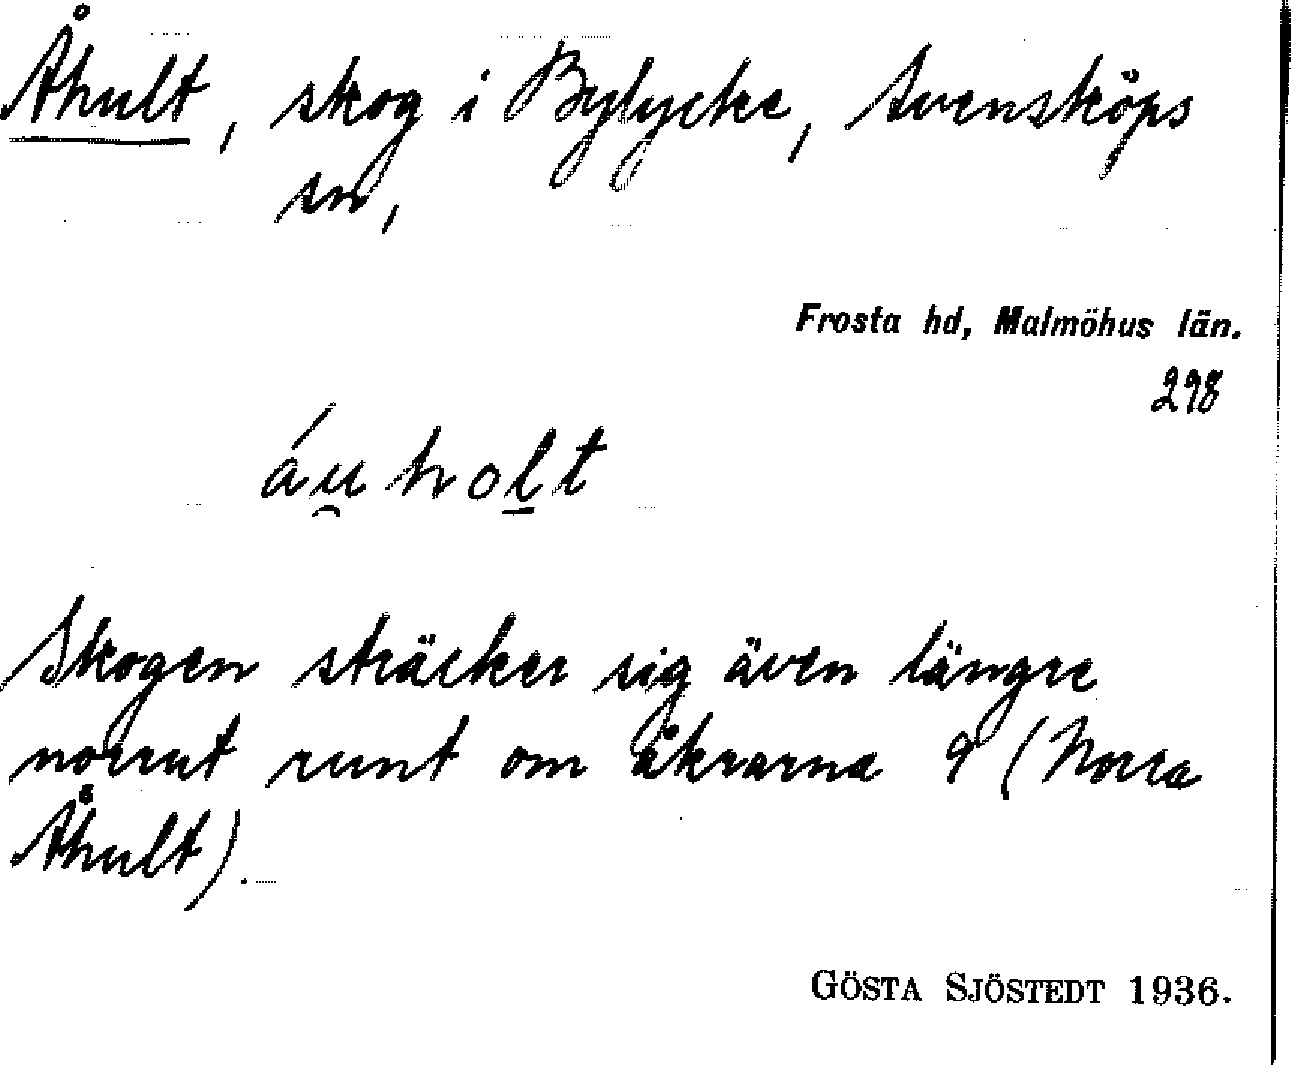 Åhult, skog i Bylycke, Svensköps
sn,
Frosta hd, Malmöhus län.
298
áu̯holt
Skogen sträcker sig även längre
norrut runt om åkrarna 9 (Norra
Åhult).
GÖSTA SJÖSTEDT 1936.